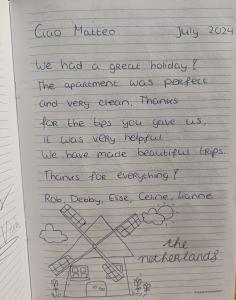 Ciao Matteo July 2024
We had a great holiday!
The apartment was perfect
and very clean. Thanks
for the tips you gave us,
it was very helpful.
We have made beautiful trips.
Thanks for everything!
Rob, Debby, Elise, Celine, Lianne
the
netherlands